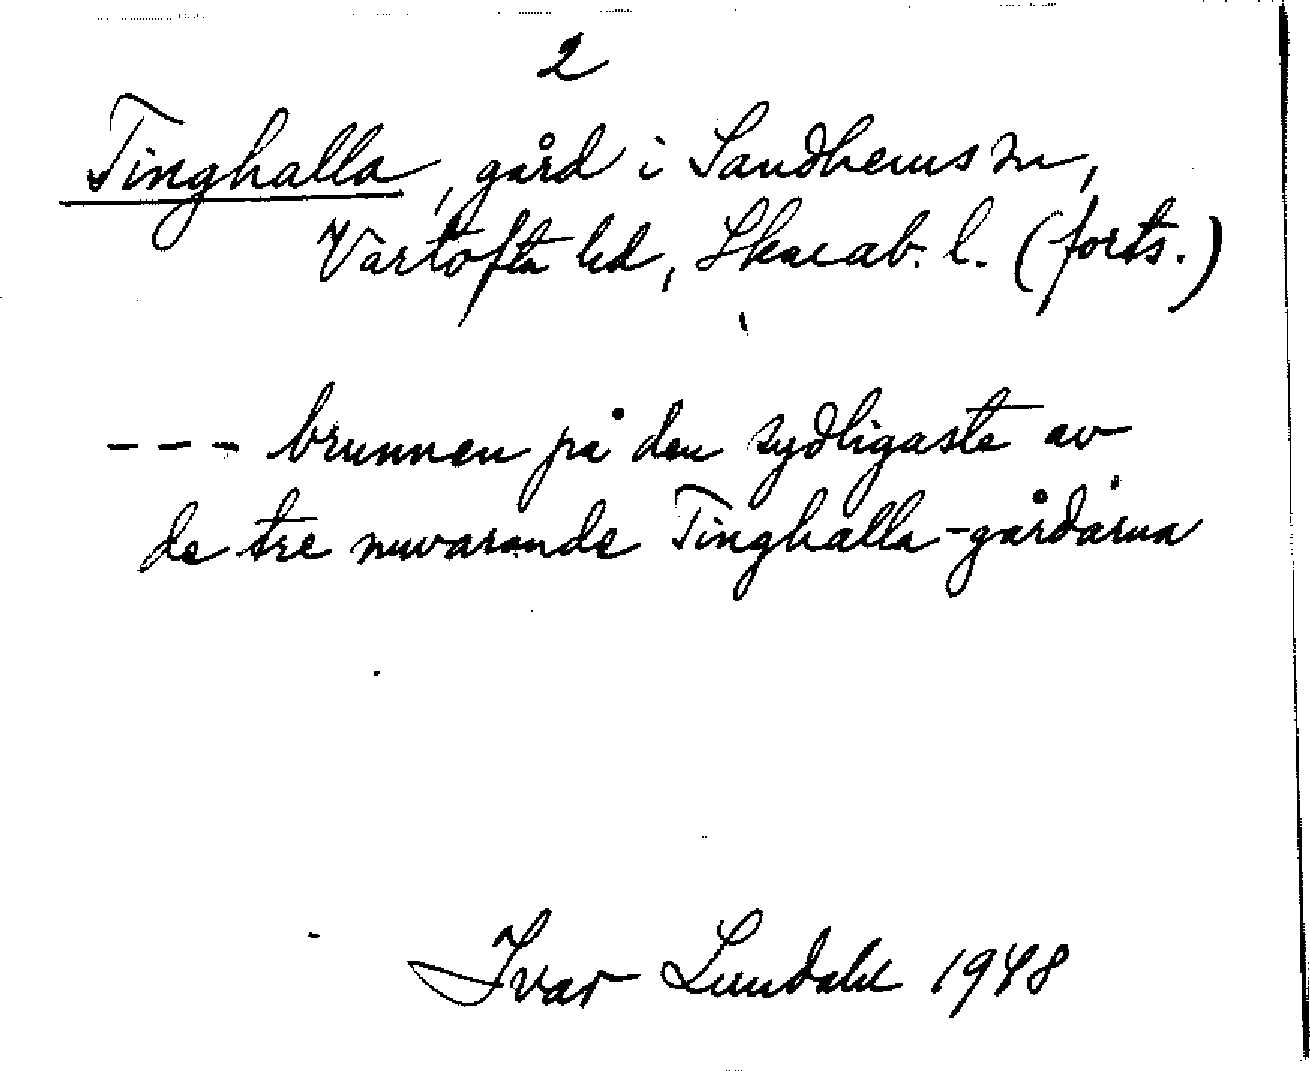 2
Tinghalla, gård i Sandhems sn,
Vartofta hd, Skarab. l. (forts.)
--- brunnen på den sydligaste av
de tre nuvarande Tinghalla-gårdarna
Ivar Lundahl 1948